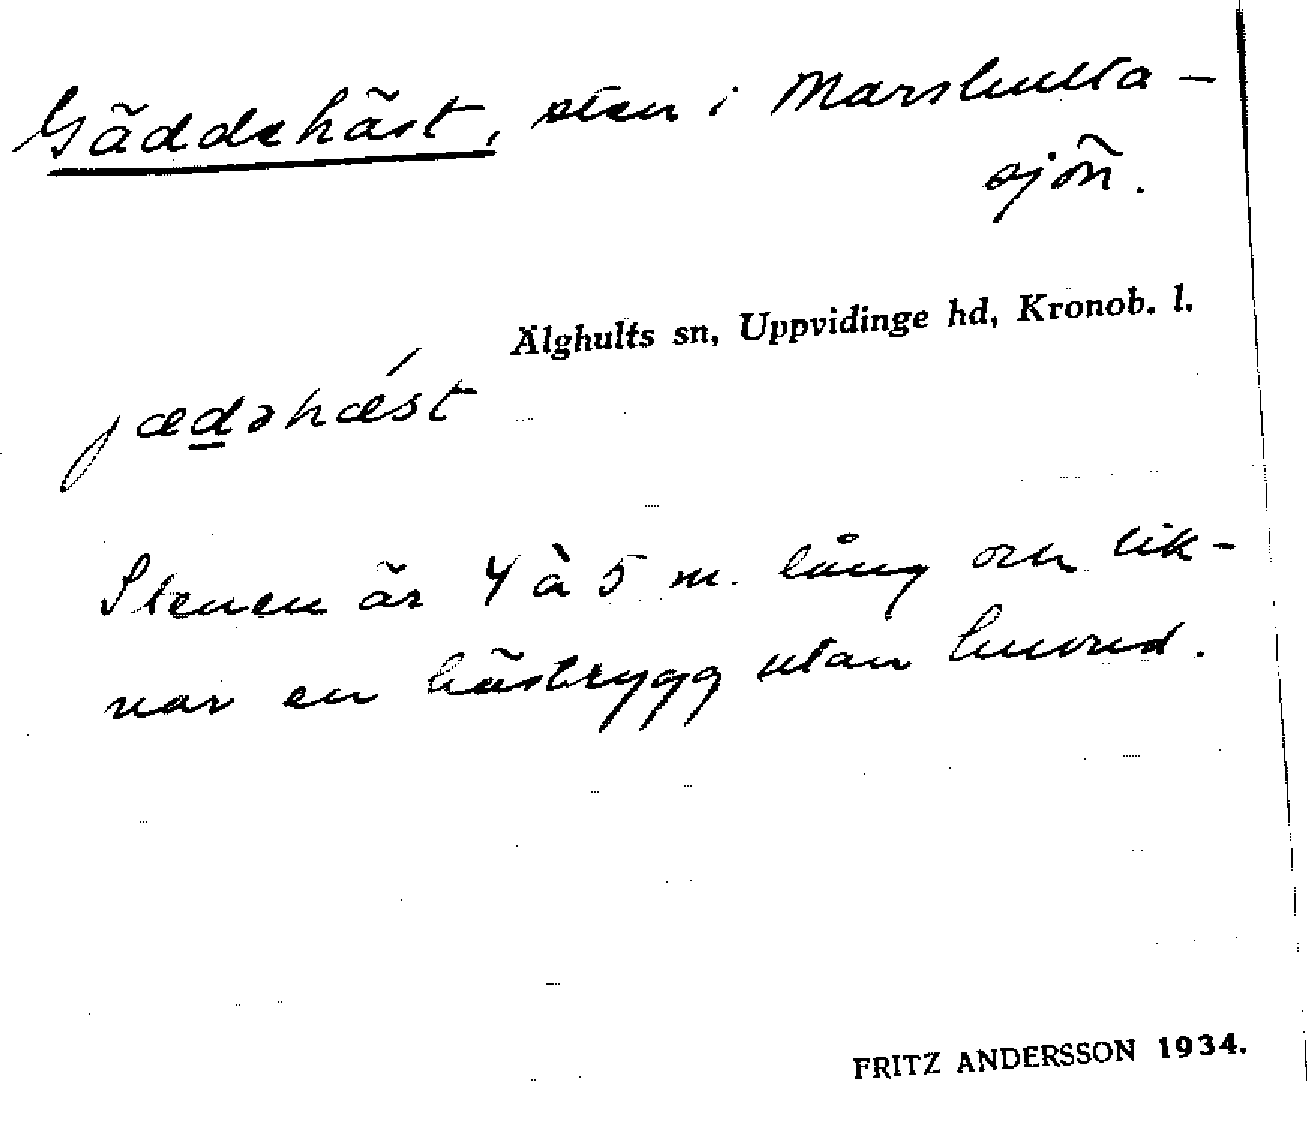 Gäddehäst, sten i Marshulta-
sjön.
Älghults sn, Uppvidinge hd, Kronob. l.
jædəhæst
Stenen är 4 à 5 m. lång och lik-
nar en hästrygg utan huvud.
FRITZ ANDERSSON 1934.